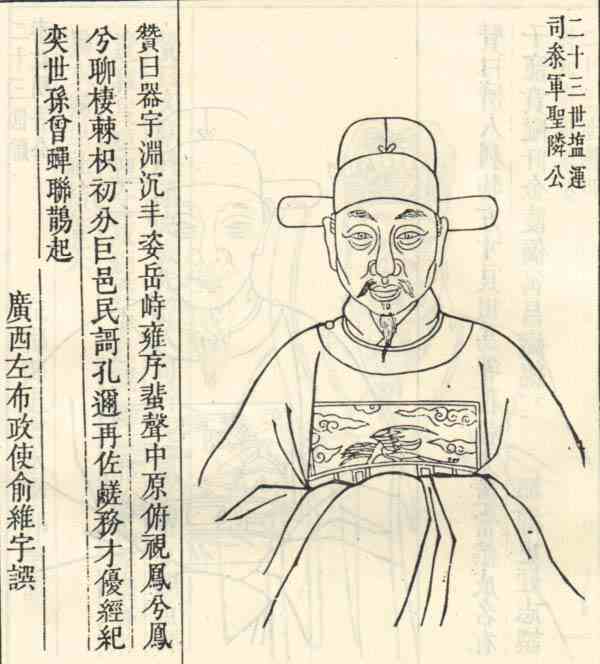 二十三世塩運
司叅軍聖隣公
贊曰器宇淵沉丰姿岳峙雍序蜚聲中原俯視鳳兮鳳
兮聊棲棘枳初分巨邑民謌孔邇再佐鹾務才優經紀
奕世孫曾蟬聯鵲起
廣西左布政使俞維宇譔